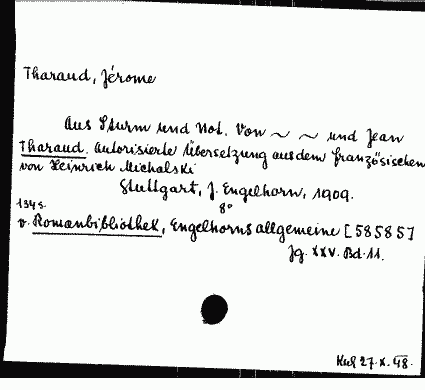 Tharaud, Jérome
Aus Sturm und Not. Von ~ ~ und Jean
Tharaud. Autorisierte Übersetzung aus dem Französischen
von Heinrich Michalski
Stuttgart, J. Engelhorn, 1909.
134 s. 8°
v. Romanbibliothek, Engelhorns allgemeine [58585]
Jg. XXV. Bd. 11.
27.X.48.